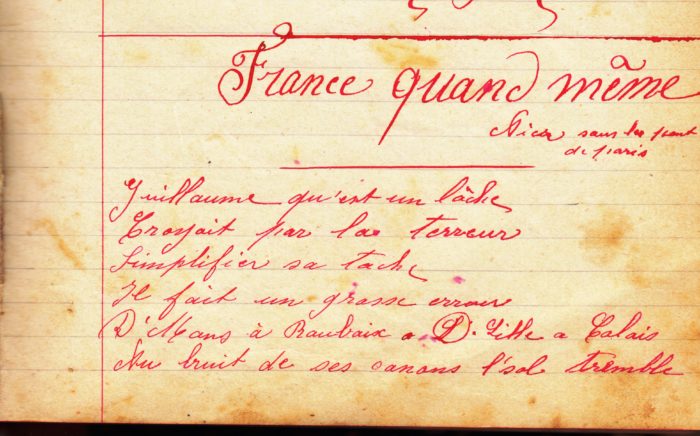 France quand même
Air sous les pont
de paris
Guillaume qu'est un lâche
Croyait par la terreur
Simplifier sa tache
Il fait un grosse erreur
D'Mons à Roubaix a D'Lille a Calais
Au bruit de ses canons l'sol tremble